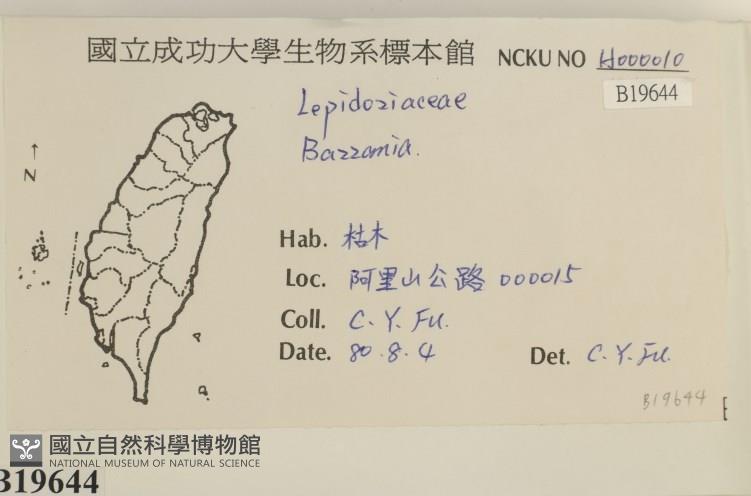 國立成功大學生物系標本館 NCKU NO H000010
B19644
Lepidoziaceae
Bazzania.
↑
N
Hab. 枯木
Loc. 阿里山公路 000015
Coll. C. Y. Fu.
Date. 80.8.4 Det. C. Y. Fu.
B19644
國立自然科學博物館
NATIONAL MUSEUM OF NATURAL SCIENCE
B19644